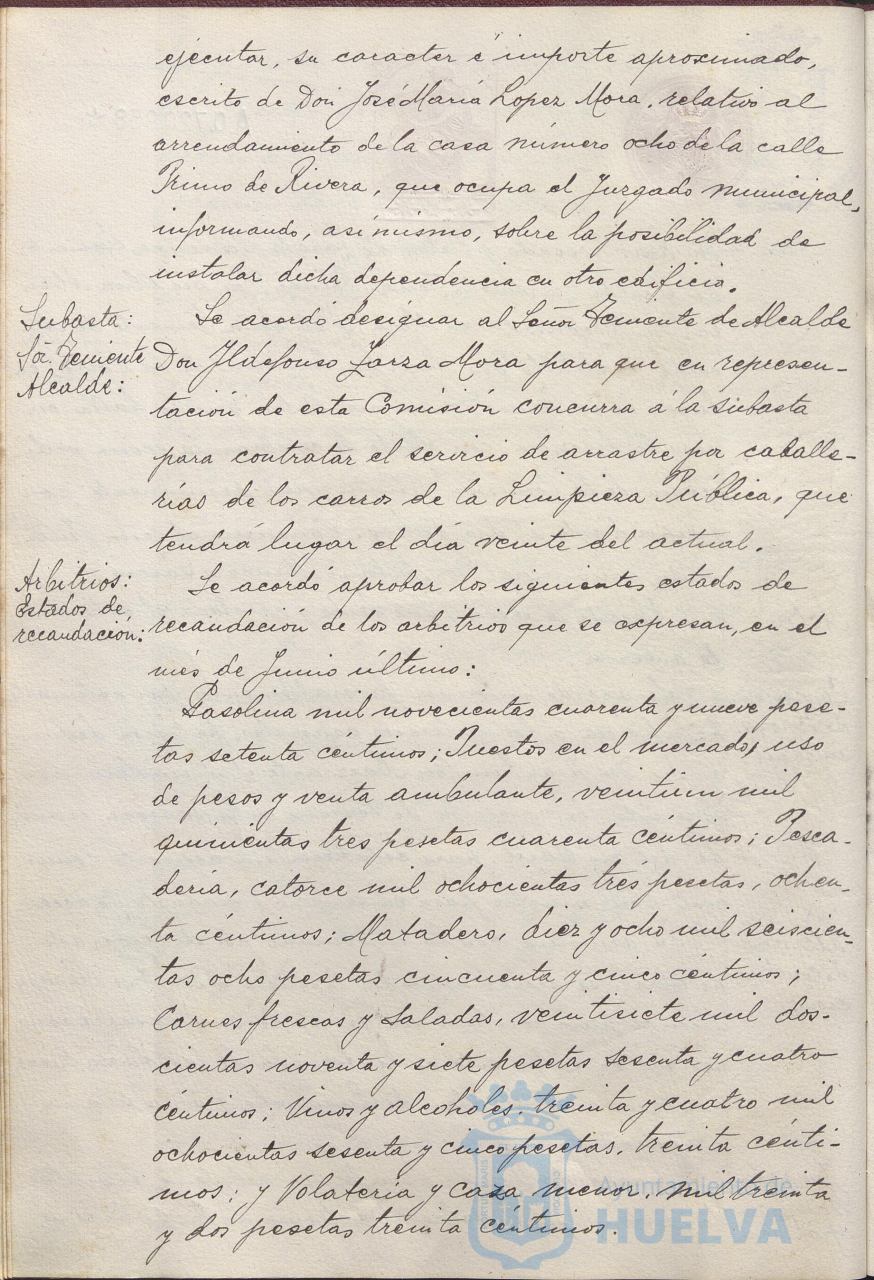 ejecutar, su caracter é importe aproximado,
escrito de Don José María Lopez Mora, relativo al
arrendamiento de la casa número ocho de la calle
Primo de Rivera, que ocupa el Juzgado municipal,
informando, asi mismo, sobre la posibilidad de
instalar dicha dependencia en otro edificio.
Subasta:
Sr. Teniente
Alcalde:
Se acordó designar al Señor Teniente de Alcalde
Don Ildefonso Zarza Mora para que en represen-
tación de esta Comisión concurra á la subasta
para contratar el servicio de arrastre por caballe-
rías de los carros de la Limpieza Pública, que
tendrá lugar el día veinte del actual.
Arbitrios:
Estados de
recaudación:
Se acordó aprobar los siguientes estados de
recaudación de los arbitrios que se expresan, en el
més de Junio último:
Gasolina mil novecientas cuarenta y nueve pese-
tas setenta céntimos; Puestos en el mercado, uso
de pesos y venta ambulante, veintiun mil
quinientas tres pesetas cuarenta céntimos; Pesca-
dería, catorce mil ochocientas trés pesetas, ochen-
ta céntimos; Matadero, diez y ocho mil seiscien-
tas ocho pesetas cincuenta y cinco céntimos;
Carnes frescas y saladas, veintisiete mil dos-
cientas noventa y siete pesetas sesenta y cuatro
céntimos; Vinos y alcoholes, treinta y cuatro mil
ochocientas sesenta y cinco pesetas, treinta cénti-
mos; y Volatería y caza menor, mil treinta
y dos pesetas treinta céntimos.
Ayuntamiento de
HUELVA